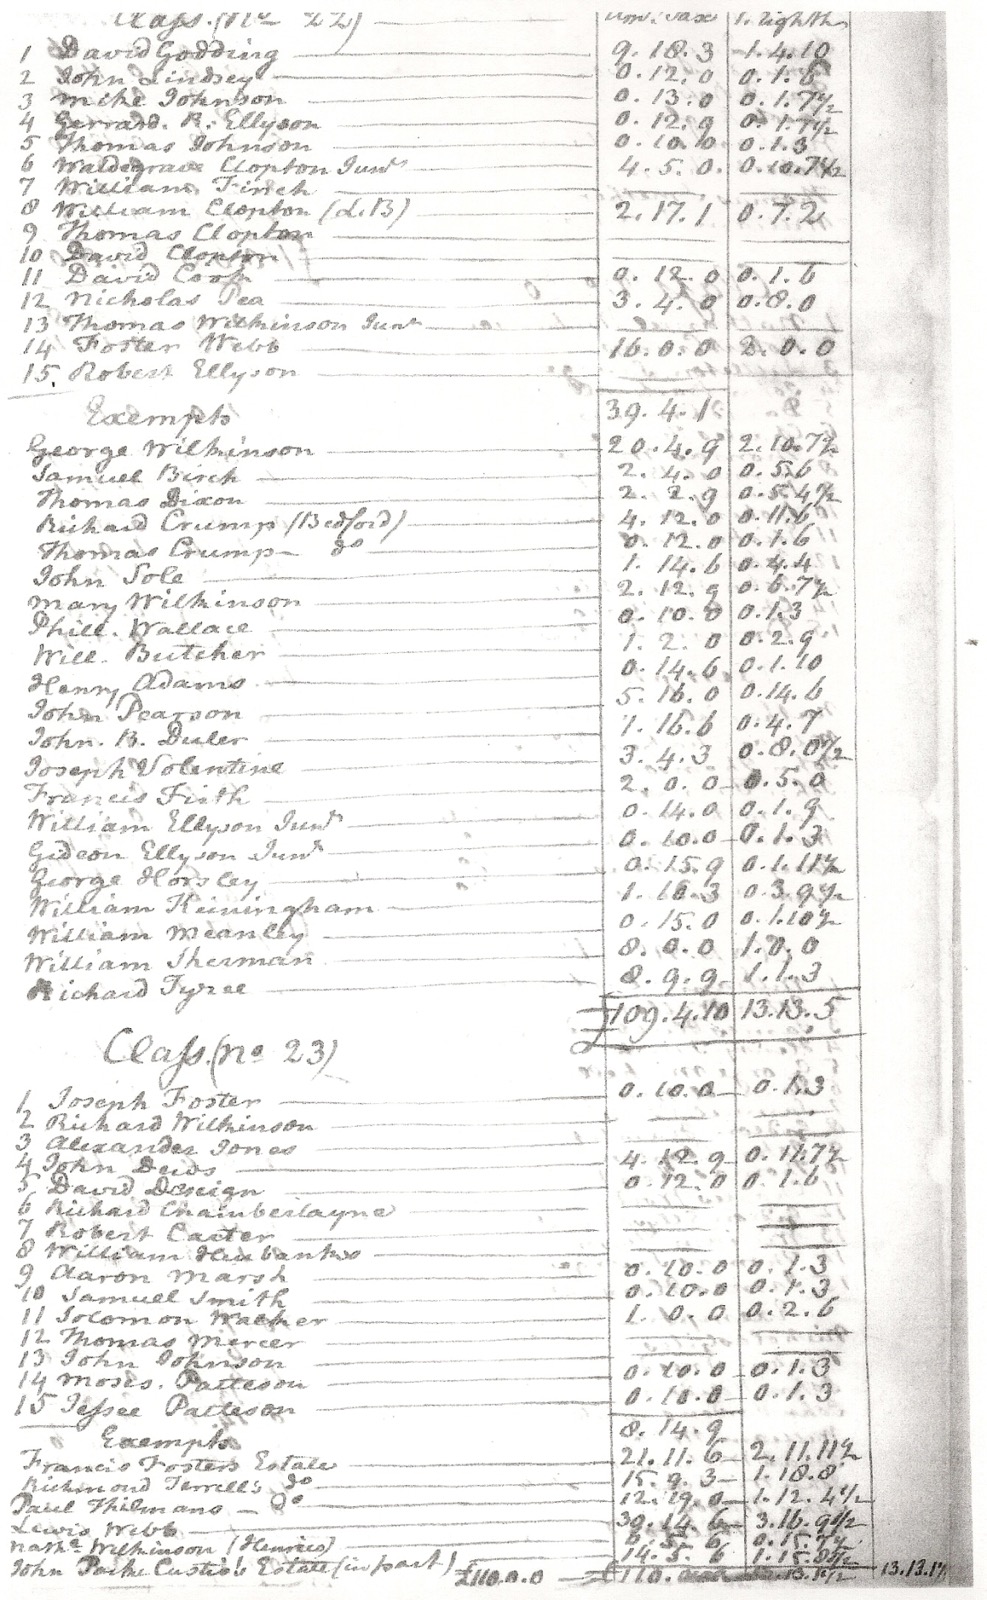 Class. (No 22) Am: Tax 1. Eighth
1 David Godding 9. 18. 3 1. 4. 10
2 John Lindsey 0. 12. 0 0. 1. 6
3 Mike Johnson 0. 13. 0 0. 1. 7½
4 Gerrard. R. Ellyson 0. 12. 9 0. 1. 7½
5 Thomas Johnson 0. 10. 0 0. 1. 3
6 Waldegrave Clopton Junr 4. 5. 0. 0. 10. 7½
7 William Finch
8 William Clopton (L.B) 2. 17. 1 0. 7. 2
9 Thomas Clopton
10 David Clopton
11 David Cook 0. 12. 0 0. 1. 6
12 Nicholas Pea 3. 4. 0 0. 8. 0
13 Thomas Wilkinson Junr
14 Foster Webb 16. 0. 0 2. 0. 0
15. Robert Ellyson
Exempts 39. 4. 1
George Wilkinson 20. 4. 9 2. 10. 7½
Samuel Birch 2. 4. 0 0. 5. 6
Thomas Dixon 2. 2. 9 0. 5. 4½
Richard Crump (Bedford) 4. 12. 0 0. 11. 6
Thomas Crump do 0. 12. 0 0. 1. 6
John Sole 1. 14. 6 0. 4. 4
Mary Wilkinson 2. 12. 9 0. 6. 7½
Phill. Wallace 0. 10. 0 0. 1. 3
Will. Butcher 1. 2. 0 0. 2. 9
Henry Adams 0. 14. 6 0. 1. 10
John Pearson 5. 16. 0 0. 14. 6
John. B. Duler 1. 16. 6 0. 4. 7
Joseph Volentine 3. 4. 3 0. 8. 0½
Francis Firth 2. 0. 0 0. 5. 0
William Ellyson Junr 0. 14. 0 0. 1. 9
Gideon Ellyson Junr 0. 10. 0 0. 1. 3
George Horsley 0. 15. 9 0. 1. 11½
William Keiningham 1. 10. 3 0. 3. 9½
William Meanley 0. 15. 0 0. 1. 10½
William Sherman 8. 0. 0 1. 0. 0
Richard Tyree 8. 9. 9 1. 1. 3
£109. 4. 10 13. 13. 5
Class. (No 23)
1 Joseph Foster 0. 10. 0 0. 1. 3
2 Richard Wilkinson
3 Alexander Jones
4 John Dews 4. 12. 9 0. 11. 7½
5 David Design 0. 12. 0 0. 1. 6
6 Richard Chamberlayne
7 Robert Carter
8 William Hewbanks
9 Aaron Marsh 0. 10. 0 0. 1. 3
10 Samuel Smith 0. 10. 0 0. 1. 3
11 Solomon Walker 1. 0. 0 0. 2. 6
12 Thomas Mercer
13 John Johnson
14 Moses. Patteson 0. 10. 0 0. 1. 3
15 Jessee Patteson 0. 10. 0 0. 1. 3
Exempts 8. 14. 9
Francis Fosters Estate 21. 11. 6 2. 11. 11½
Richmond Terrell's do 15. 9. 3 1. 18. 8
Paul Thilmans do 12. 19. 0 1. 12. 4½
Lewis Webb 30. 14. 6 3. 16. 9½
Nathl Wilkinson (Henrico)
John Parke Custis's Estate (in part) £110.0.0 14. 5. 6
£110. 13.13.